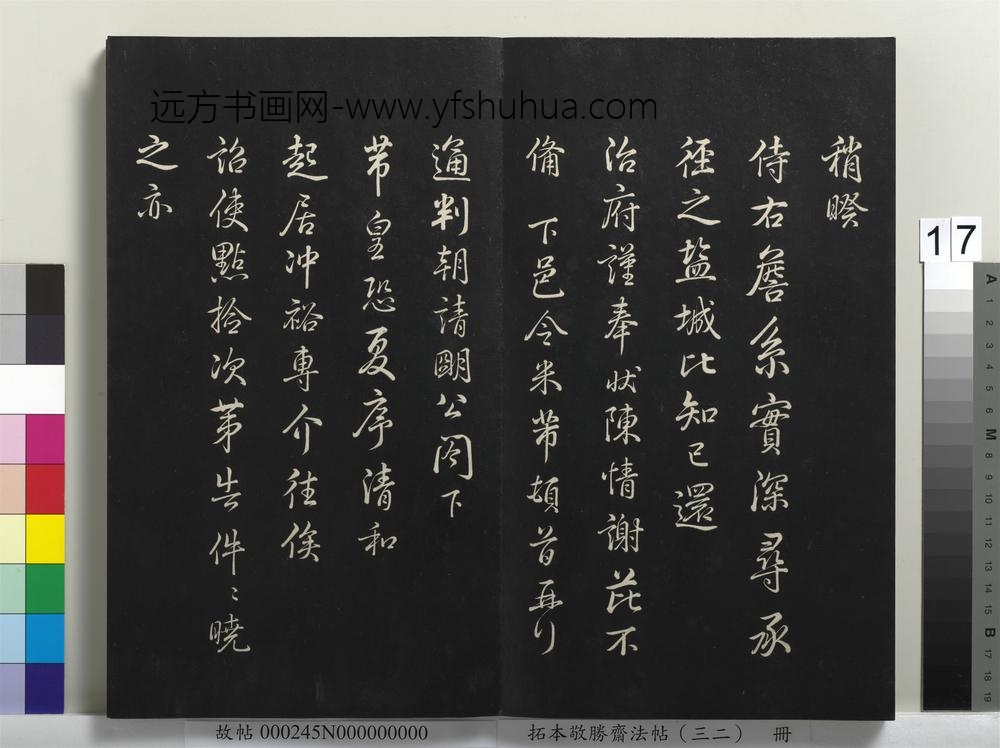 远方书画网-www.yfshuhua.com
稍暌
侍右詹系實深尋承
徑之盐城比知已還
治府謹奉狀陳情謝芘不
俻 下邑令米芾頓首再行
通判朝請明公閤下
芾皇恐夏序清和
起居冲裕専介往俟
詔使點撿次第告件〻曉
之亦
17
A
1
2
3
4
5
6
M
8
9
10
11
12
13
14
15
B
17
18
19
故帖 000245N000000000
拓本敬勝齋法帖(三二) 冊